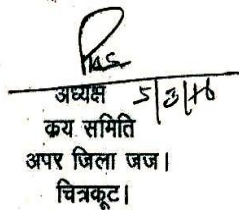 अध्यक्ष 5/3/16
क्रय समिति
अपर जिला जज।
चित्रकूट।